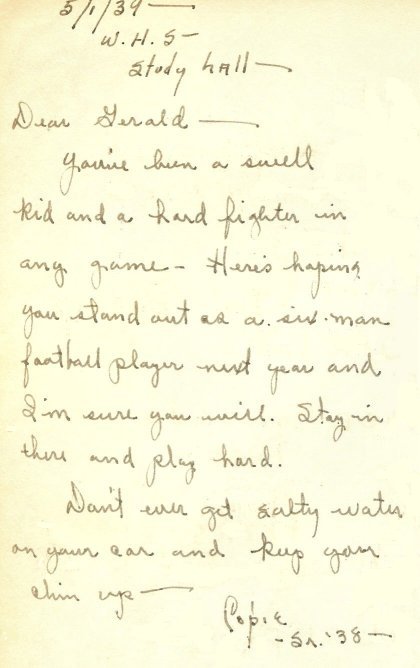 5/1/39 —
W.H.S —
Study hall —
Dear Gerald —
You've been a swell
kid and a hard fighter in
any game - Here's hoping
you stand out as a six-man
football player next year and
I'm sure you will. Stay in
there and play hard.
Don't ever get salty water
on your car and keep your
chin up —
Popie
- Sr. '38 -